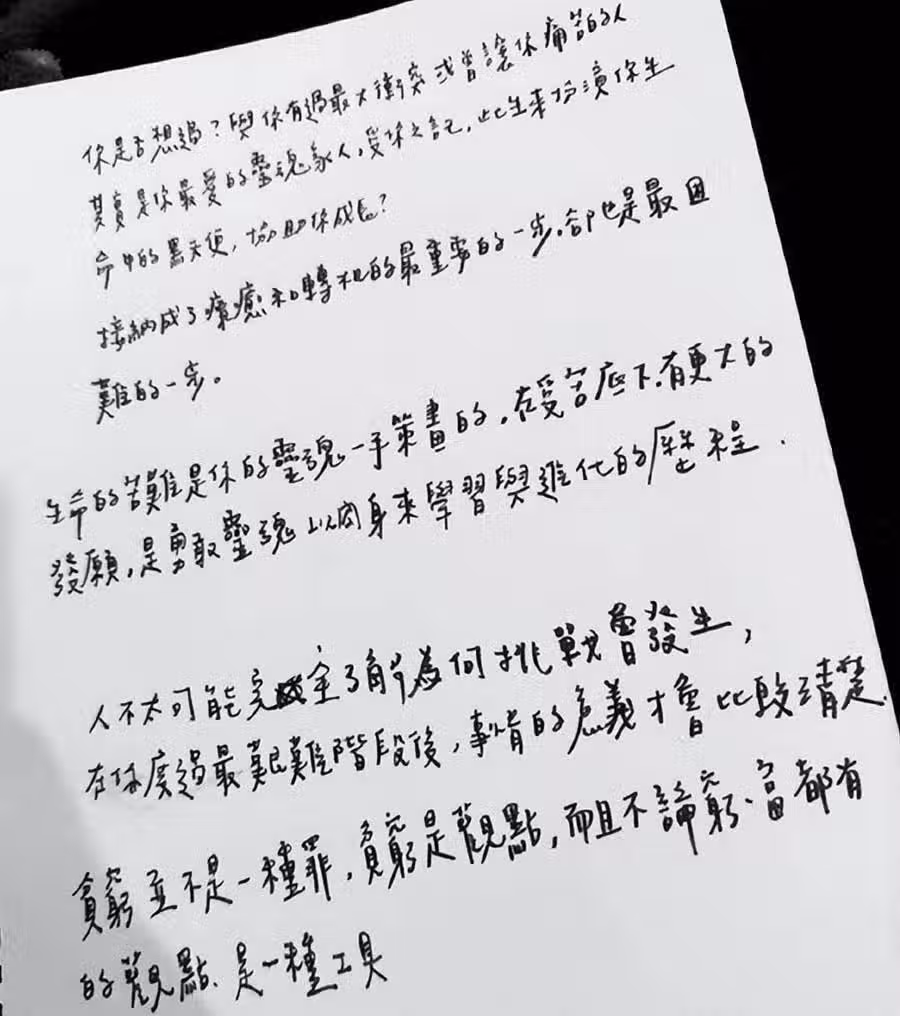 你是否想過？與你有過最大衝突或曾讓你痛苦的人
其實是你最愛的靈魂家人，受你之託，此生來扮演你生
命中的黑天使，協助你成長？
接納成了療癒和轉机的最重要的一步。卻也是最困
難的一步。
生命的苦難是你的靈魂一手策畫的，在受苦底下.有更大的
發願，是勇敢靈魂以肉身來學習與進化的歷程．
人不太可能完全了解為何挑戰會發生，
在你度過最艱難階段後，事情的意義才會比較清楚．
貧窮並不是一種罪，貧窮是觀點，而且不論窮、富都有
的觀點、是一種工具